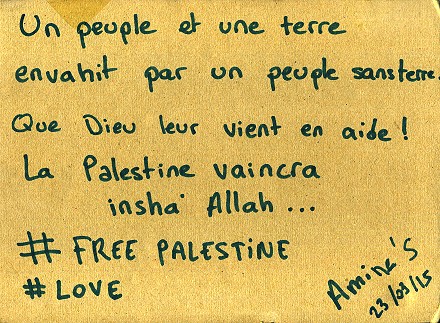 Un peuple et une terre
envahit par un peuple sans terre.
Que Dieu leur vient en aide !
La Palestine vaincra
insha' Allah ...
# FREE PALESTINE
# LOVE
Amine'S
23/03/15